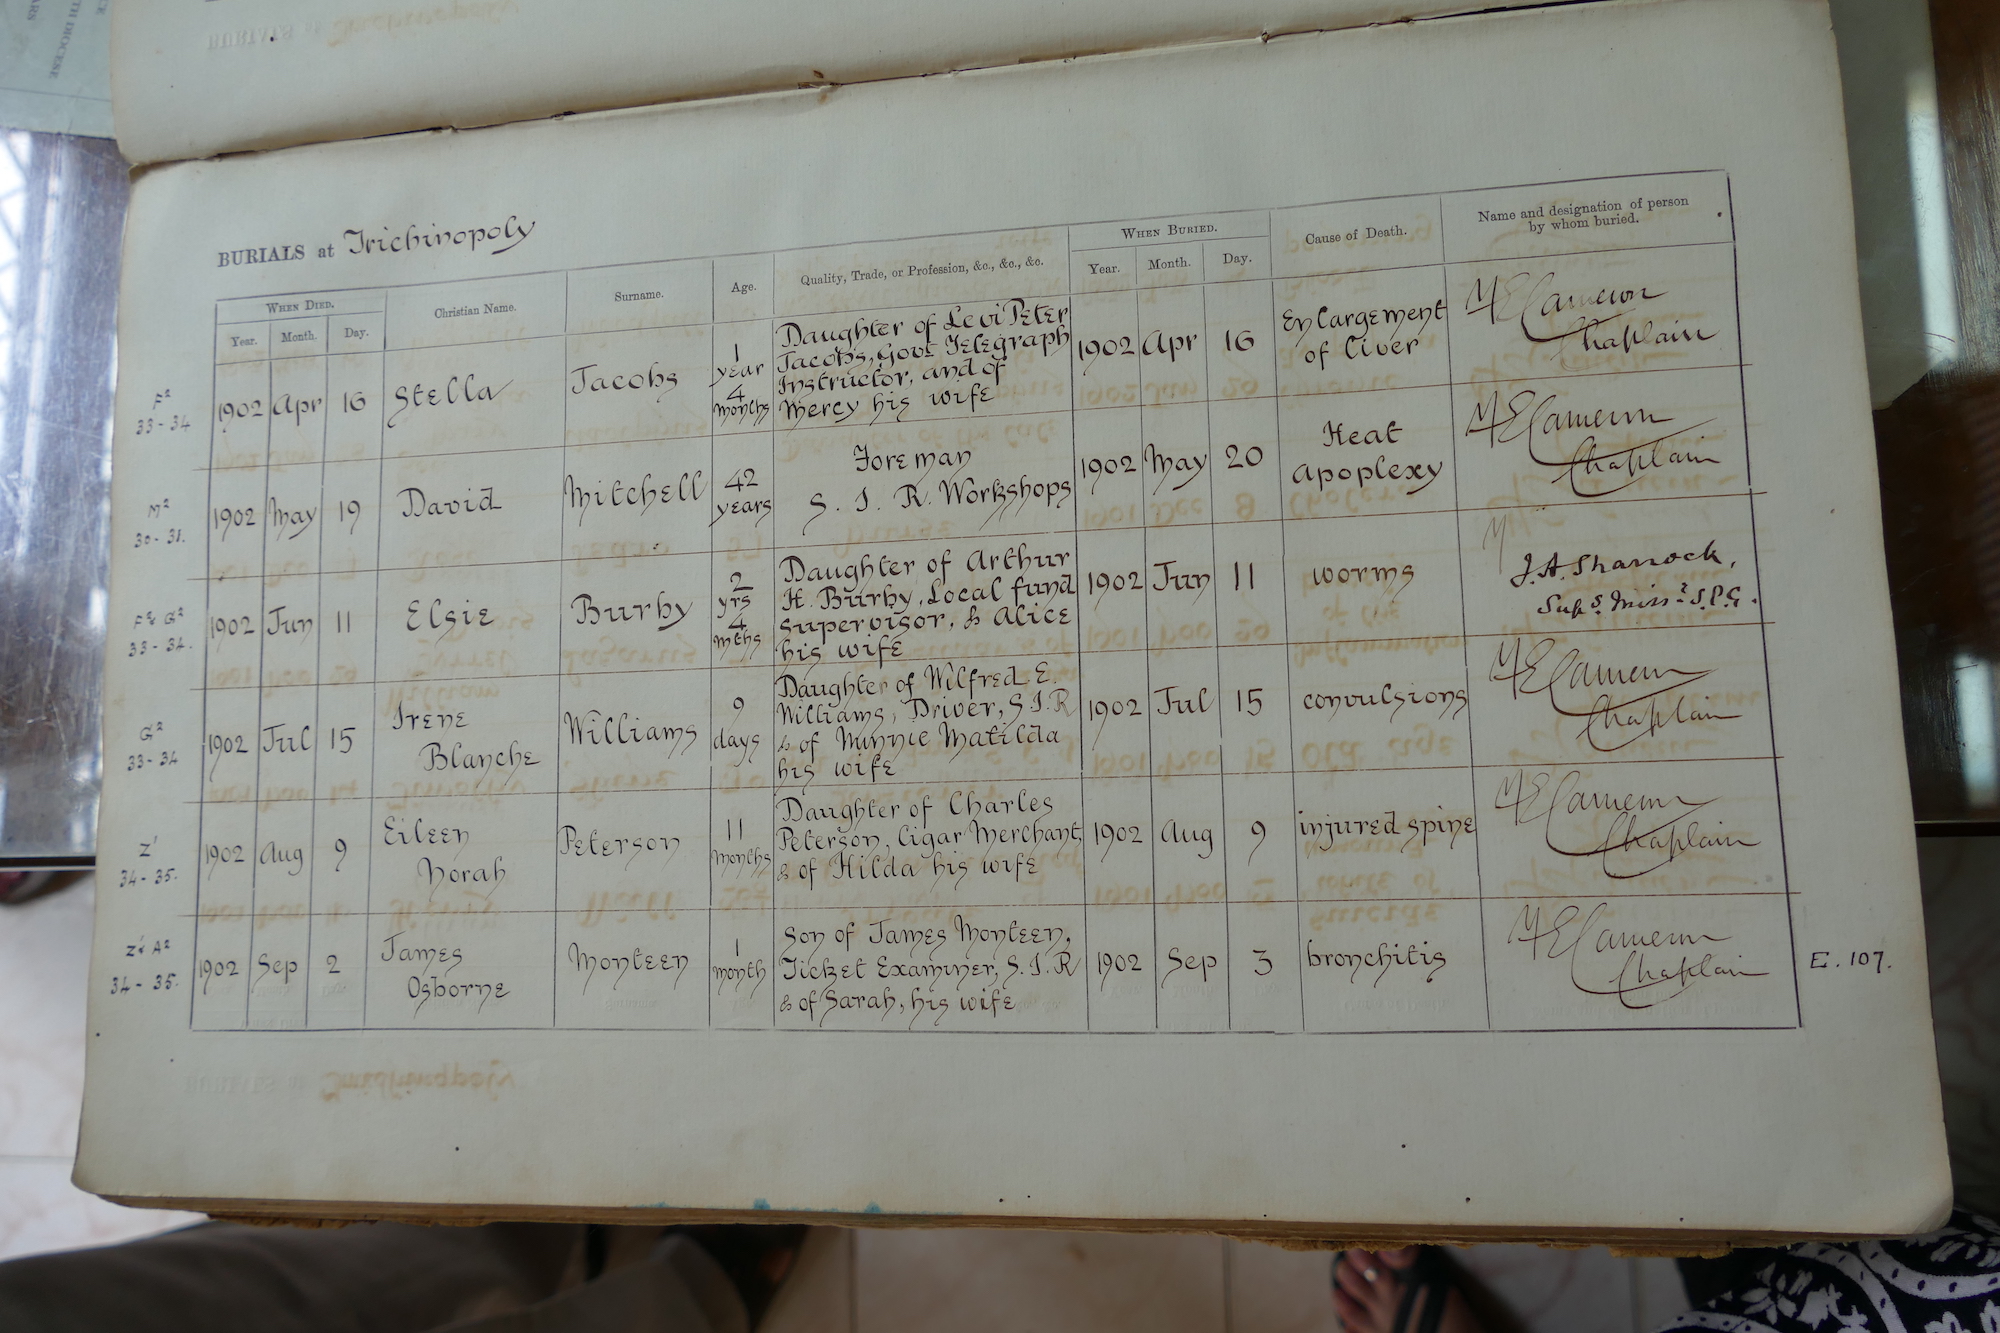 BURIALS at Trichinopoly
WHEN DIED.
Year. Month. Day.
Christian Name.
Surname.
Age.
Quality, Trade, or Profession, &c., &c., &c.
WHEN BURIED.
Year. Month. Day.
Cause of Death.
Name and designation of person
by whom buried.
F²
33-34
1902 Apr 16
Stella
Jacobs
1
year
4
months
Daughter of Levi Peter
Jacobs, Govt Telegraph
Instructor, and of
Mercy his wife
1902 Apr 16
Enlargement
of liver
Cameron
Chaplain
M²
30-31.
1902 May 19
David
Mitchell
42
years
Foreman
S. I. R. Workshops
1902 May 20
Heat
apoplexy
Cameron
Chaplain
F & G²
33-34.
1902 Jun 11
Elsie
Burby
2
yrs
4
mths
Daughter of Arthur
H. Burby, Local fund
supervisor, & Alice
his wife
1902 Jun 11
worms
J. A. Sharrock,
Supg. Missy. S.P.G.
G²
33-34
1902 Jul 15
Irene
Blanche
Williams
9
days
Daughter of Wilfred E.
Williams, Driver, S.I.R
& of Minnie Matilda
his wife
1902 Jul 15
convulsions
Cameron
Chaplain
Z'
34-35.
1902 Aug 9
Eileen
Norah
Peterson
11
months
Daughter of Charles
Peterson, Cigar Merchant
& of Hilda his wife
1902 Aug 9
injured spine
Cameron
Chaplain
Z'& A²
34-35.
1902 Sep 2
James
Osborne
Monteen
1
month
son of James Monteen,
Ticket Examiner, S.I.R
& of Sarah, his wife
1902 Sep 3
bronchitis
Cameron
Chaplain
E. 107.